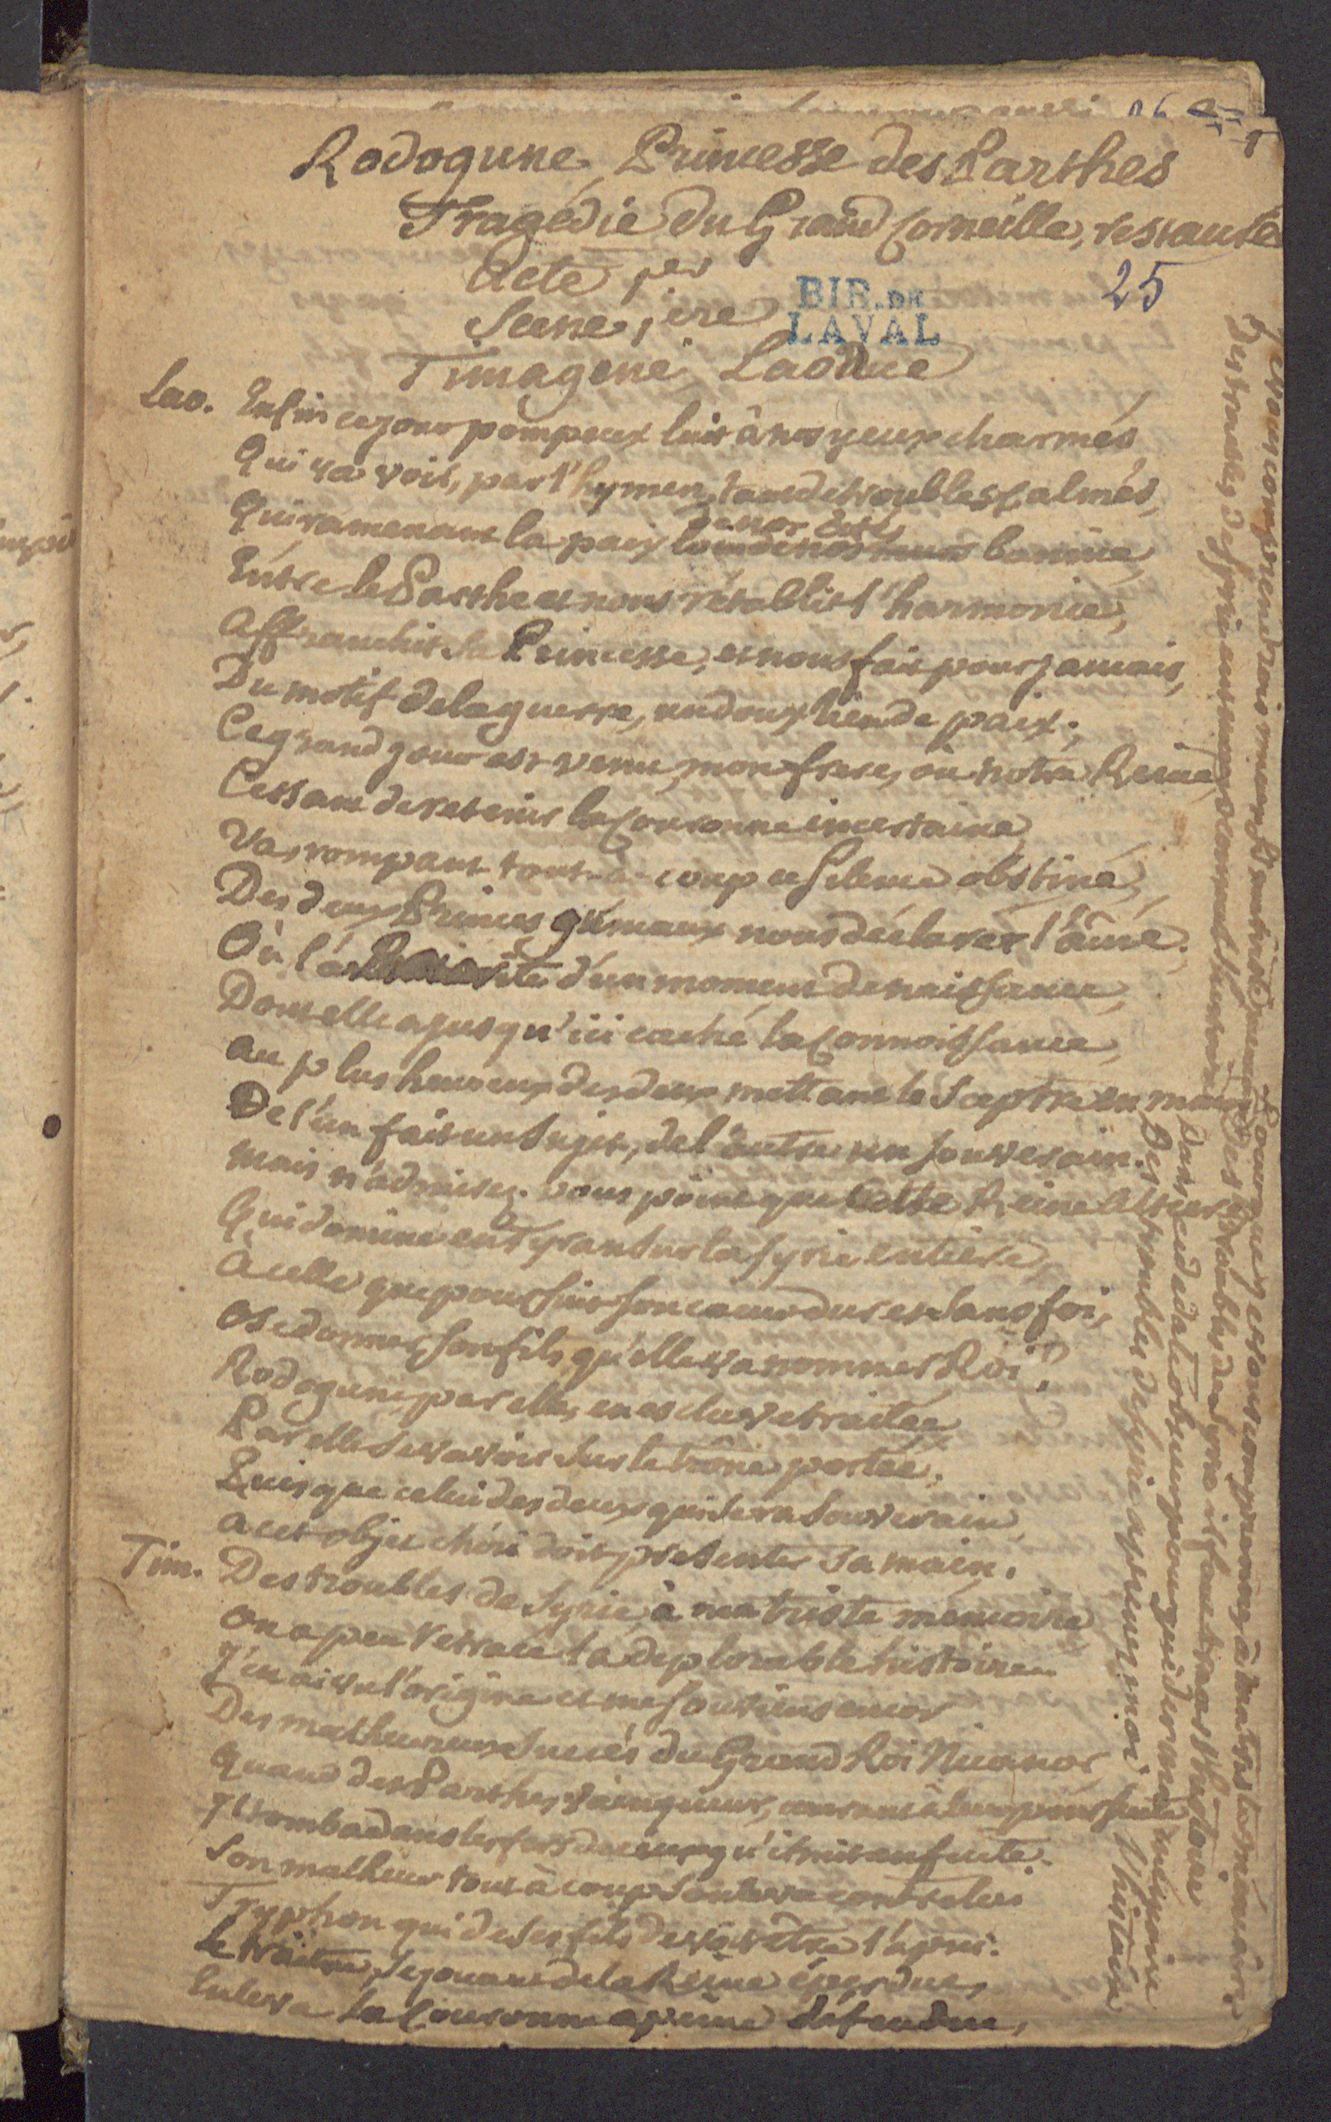 Rodogune Princesse des Parthes
Tragédie du Grand Corneille, restaurée
25
Acte 1.er
Scene 1.ere
BIB. DE
LAVAL
Timagene Laodice
Lao. Enfin ce jour pompeux luit à nos yeux charmés,
Qui va voir, par l'hymen, tant de troubles calmés,
de nos
Qui ramenant la paix loin de nos murs bannie,
Entre le Parthe et nous rétablit l'harmonie,
Affranchit sa Princesse, et nous fait pour jamais,
Du motif de la guerre, un doux lien de paix;
Ce grand jour est venu, mon frere, où notre Reine,
Cessant de retenir la Couronne incertaine,
Va, rompant tout-à-coup ce silence obstiné,
Des deux Princes gémeaux nous déclarer l'aîné.
Où l' d'un moment de naissance,
Dont elle a jusqu'ici caché la Connoissance,
Au plus heureux des deux mettant le Sceptre en main
De l'un fait un Sujet, de l'autre un Souverain.
Mais n'admirez-vous point que cette Reine altiere
Qui domine en Tyran sur la Syrie entiere,
A celle que poursuit son coeur dur et sans foi,
Ose donner son fils, qu'elle va nommer Roi?
Rodogune, par elle, en esclave traitée
Par elle se va voir sur le trône portée,
Puisque celui des deux qui sera Souverain,
A cet objet chéri doit présenter sa main.
Tim. Des troubles de Syrie, à ma triste mémoire
On a peu retracé la déplorable histoire.
J'en ai vu l'origine et me souviens encor
Des malheureux succès du Grand Roi Nicanor,
Quand des Parthes vainqueur, courant à leur poursuite
Il tomba dans les fers de ceux qu'il mit en fuite.
Son malheur tout à coup souleva contre lui
Tryphon qui de ses fils devoit être l'apui.
Le traître, se jouant de la Reine éperdue,
Enleva la Couronne à peine défendue,
Pour que je
à ma triste mémoire
Des troubles de Syrie
Des troubles de Syrie aprenez moi l'histoire